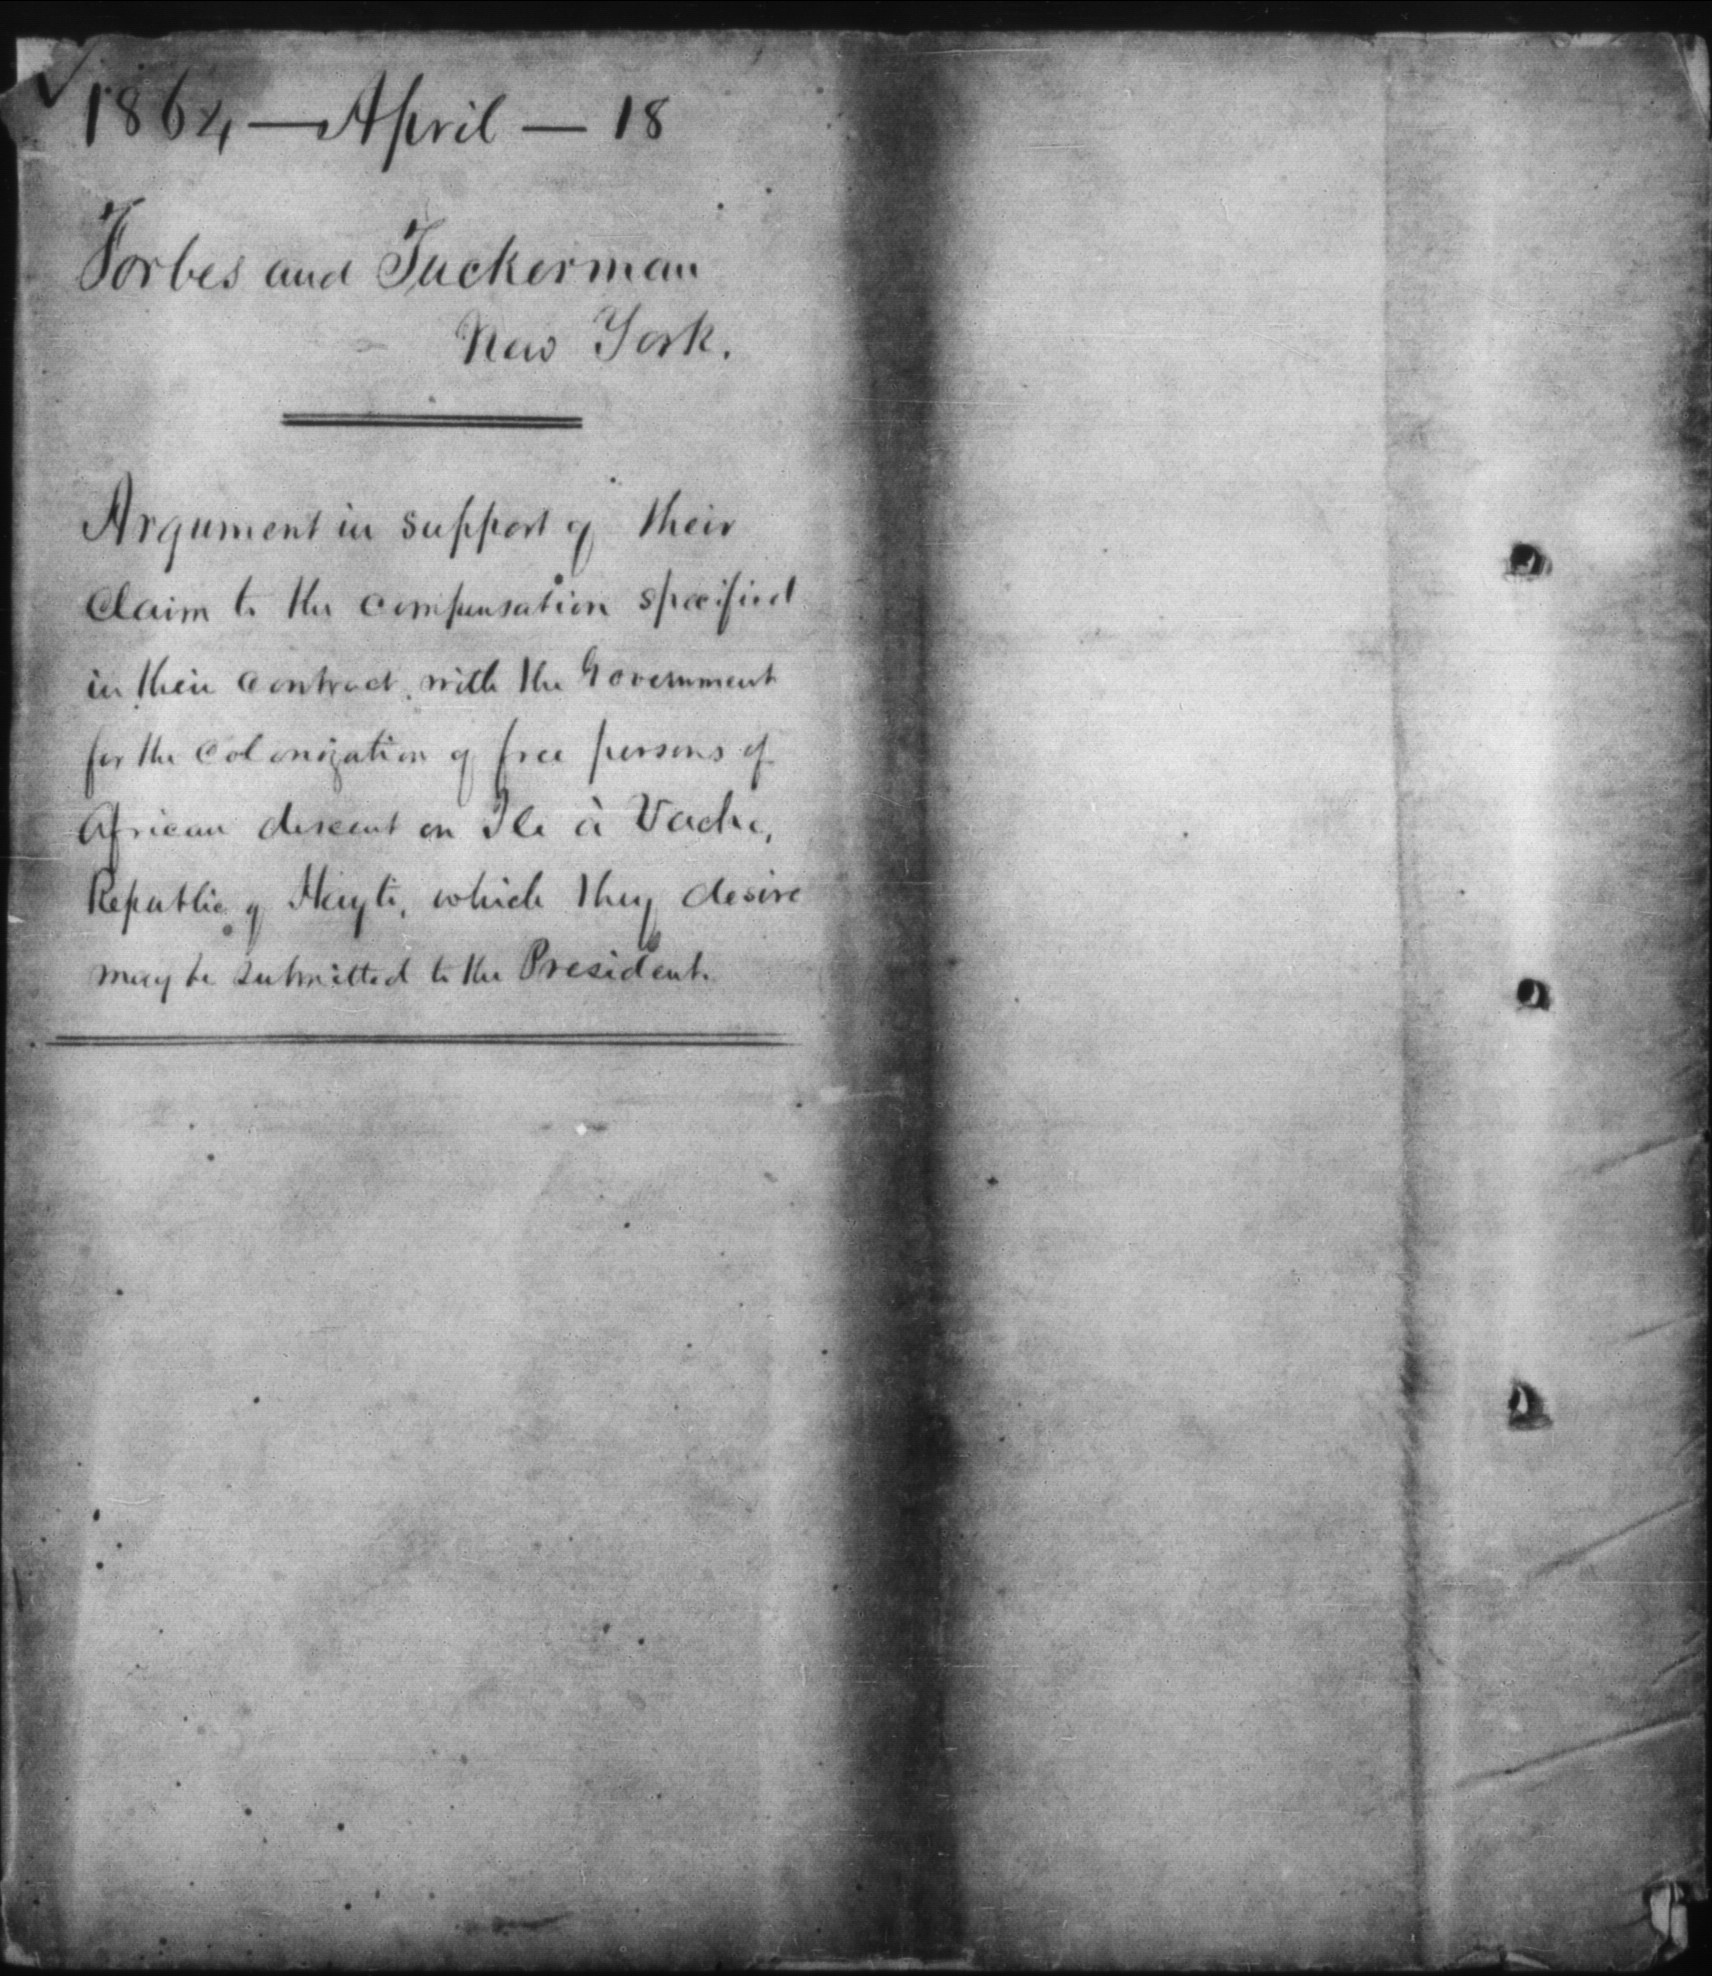 1864 — April — 18
Forbes and Tuckerman
New York.
Argument in support of their
Claim to the compensation specified
in their contract, with the Government
for the Colonization of free persons of
African descent on Ile à Vache,
Republic of Hayti, which they desire
may be submitted to the President.